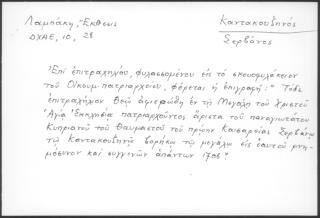 Λαμπάκη, "Ἔκθεσις
ΔΧΑΕ, 10, 28
Καντακουζηνός
Σερβάνος
Ἐπὶ ἐπιτραχηλίου, φυλασσομένου εἰς τὸ σκευοφυλάκειον
τοῦ Οἰκουμ. Πατριαρχείου, φέρεται ἡ ἐπιγραφή: "Τόδε
ἐπιτραχήλιον θεῷ ἀφιερώθη ἐν τῇ Μεγάλῃ τοῦ Χριστοῦ
Ἁγίᾳ Ἐκκλησίᾳ πατριαρχοῦντος ἄριστα τοῦ παναγιωτάτου
Κυπριανοῦ τοῦ θαυμαστοῦ τοῦ πρῴην Καισαρείας Σερβάνῳ
τῷ Καντακουζηνῷ βορνίκῳ τῷ μεγάλῳ εἰς ἑαυτοῦ μνη-
μόσυνον καὶ συγγενῶν ἁπάντων 1708"